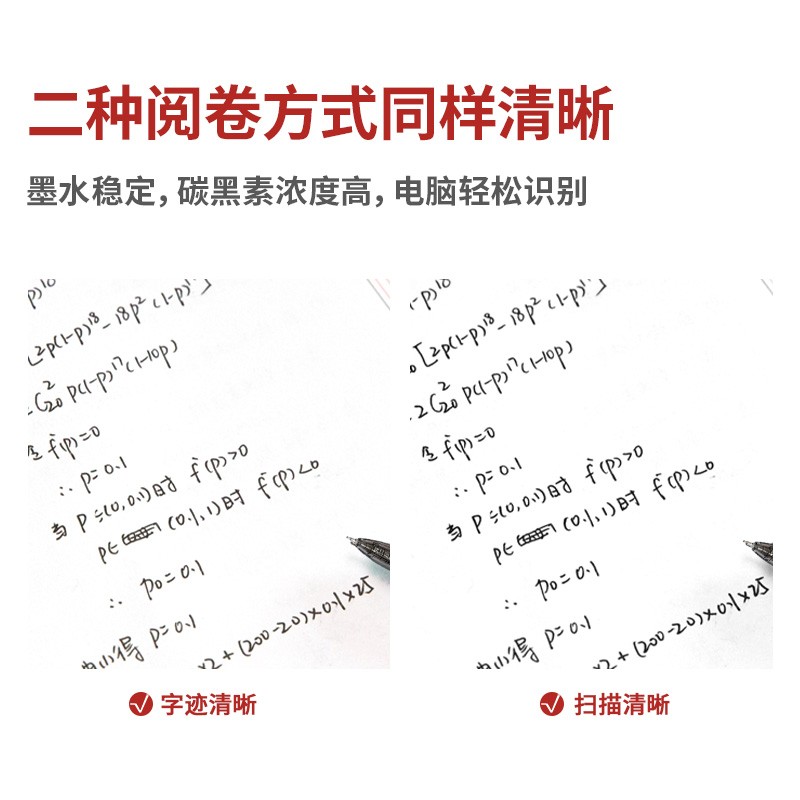 二种阅卷方式同样清晰
墨水稳定，碳黑素浓度高，电脑轻松识别
-p)¹⁸
[2p(1-p)¹⁸-18p²(1-p)¹⁷]
2C²₂₀ p(1-p)¹⁷(1-10p)
令 f'(p)=0
∴ p=0.1
当 p=(0,0.1)时 f'(p)>0
p∈ (0.1,1)时 f'(p)<0
∴ p₀=0.1
得 p=0.1
x2+(200-20)×0.1×25
字迹清晰
-p)¹⁸
[2p(1-p)¹⁸-18p²(1-p)¹⁷]
2C²₂₀ p(1-p)¹⁷(1-10p)
令 f'(p)=0
∴ p=0.1
当 p=(0,0.1)时 f'(p)>0
p∈ (0.1,1)时 f'(p)<0
∴ p₀=0.1
得 p=0.1
x2+(200-20)×0.1×25
扫描清晰